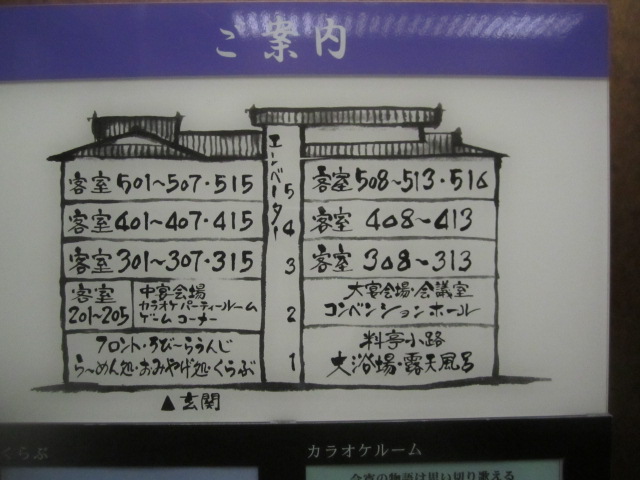 ご案内
エレベーター
5
4
3
2
1
客室501〜507・515
客室508〜513・516
客室401〜407・415
客室 408〜413
客室301〜307・315
客室 308〜313
客室
201〜205
中宴会場
カラオケパーティールーム
ゲームコーナー
大宴会場・会議室
コンベンションホール
フロント・ろびーらうんじ
らーめん処・おみやげ処・くらぶ
料亭小路
大浴場・露天風呂
▲玄関
くらぶ
カラオケルーム
今宵の物語は思い切り歌える